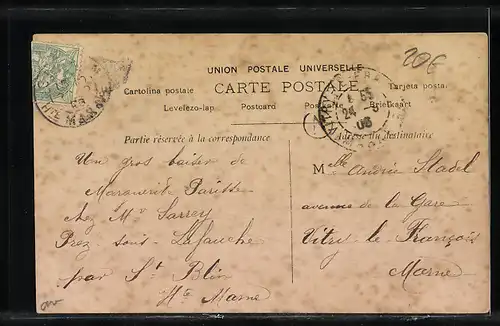 20€
UNION POSTALE UNIVERSELLE
CARTE POSTALE
Cartolina postale
Tarjeta postal
Levelezo-lap
Postcard
Briefkaart
Partie réservée à la correspondance
Adresse du destinataire
Un gros baiser de
Marguerite Parisse
chez Mr Sarrey
Prez-sous-Lafauche
par St Blin
Hte Marne
Melle Stadel
avenue de la Gare
Vitry-le-François
Marne
24
06
MARNE